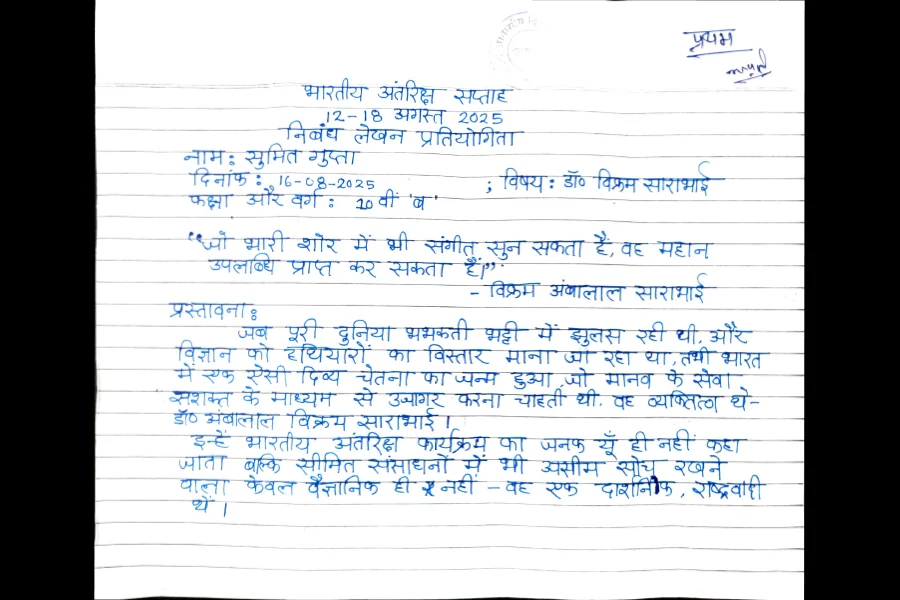 प्रथम
भारतीय अंतरिक्ष सप्ताह
12-18 अगस्त 2025
निबंध लेखन प्रतियोगिता
नाम: सुमित गुप्ता
दिनांक: 16-08-2025 ; विषय: डॉ० विक्रम साराभाई
कक्षा और वर्ग: 10वीं 'ब'
“जो भारी शोर में भी संगीत सुन सकता है, वह महान
उपलब्धि प्राप्त कर सकता है।”
- विक्रम अंबालाल साराभाई
प्रस्तावना:
जब पूरी दुनिया भभकती भट्टी में झुलस रही थी, और
विज्ञान को हथियारों का विस्तार माना जा रहा था, तभी भारत
में एक ऐसी दिव्य चेतना का जन्म हुआ जो मानव के सेवा
सशक्त के माध्यम से उजागर करना चाहती थी. वह व्यक्तित्व थे-
डॉ० अंबालाल विक्रम साराभाई।
इन्हें भारतीय अंतरिक्ष कार्यक्रम का जनक यूँ ही नहीं कहा
जाता बल्कि सीमित संसाधनों में भी असीम सोच रखने
वाला केवल वैज्ञानिक ही नहीं - वह एक दार्शनिक, राष्ट्रवादी
थें।